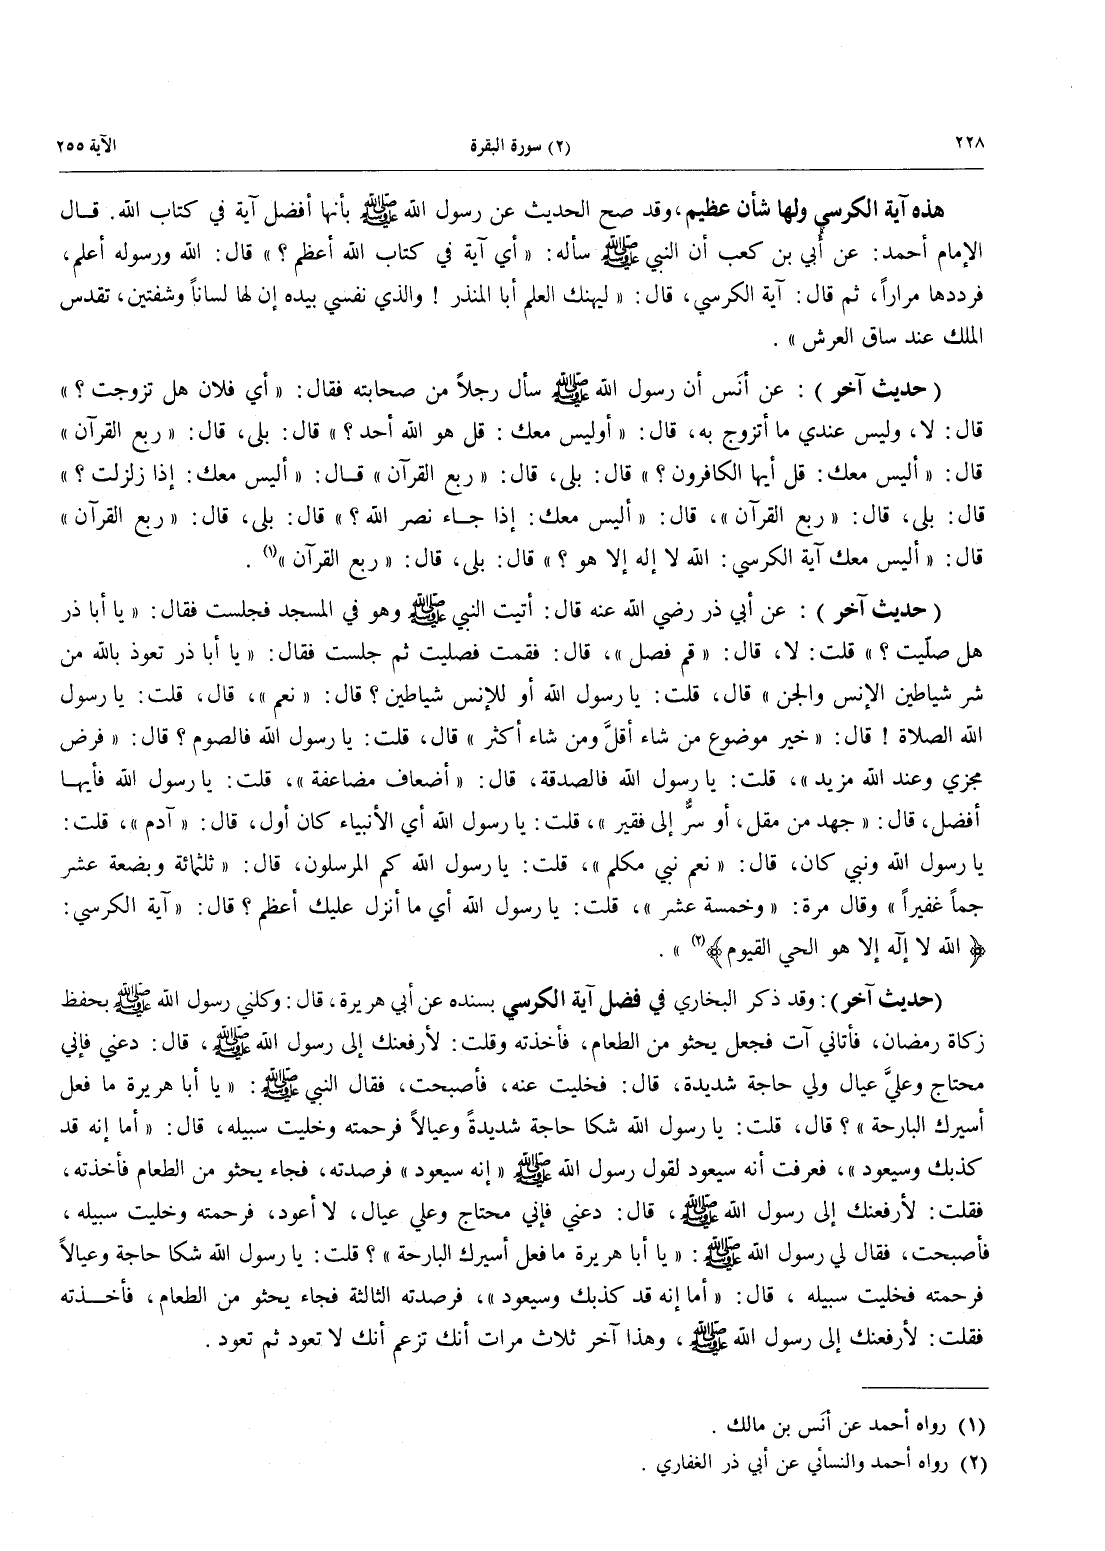 ٢٢٨ (٢) سورة البقرة الآية ٢٥٥
هذه آية الكرسي ولها شأن عظيم، وقد صح الحديث عن رسول الله ﷺ بأنها أفضل آية في كتاب الله. قـال
الإمام أحمد: عن أُبي بن كعب أن النبي ﷺ سأله: « أي آية في كتاب الله أعظم ؟ » قال: الله ورسوله أعلم،
فرددها مراراً، ثم قال: آية الكرسي، قال: « ليهنك العلم أبا المنذر ! والذي نفسي بيده إن لها لساناً وشفتين، تقدس
الملك عند ساق العرش » .
( حديث آخر ) : عن أنَس أن رسول الله ﷺ سأل رجلاً من صحابته فقال: « أي فلان هل تزوجت ؟ »
قال: لا، وليس عندي ما أتزوج به، قال: « أوليس معك : قل هو الله أحد ؟ » قال: بلى، قال: « ربع القرآن »
قال: « أليس معك: قل أيها الكافرون ؟ » قال: بلى، قال: « ربع القرآن » قـال: « أليس معك: إذا زلزلت ؟ »
قال: بلى، قال: « ربع القرآن »، قال: « أليس معك: إذا جـاء نصر الله ؟ » قال: بلى، قال: « ربع القرآن »
قال: « أليس معك آية الكرسي: الله لا إله إلا هو ؟ » قال: بلى، قال: « ربع القرآن »(١) .
( حديث آخر ) : عن أبي ذر رضي الله عنه قال: أتيت النبي ﷺ وهو في المسجد فجلست فقال: « يا أبا ذر
هل صلّيت ؟ » قلت: لا، قال: « قم فصل »، قال: فقمت فصليت ثم جلست فقال: « يا أبا ذر تعوذ بالله من
شر شياطين الإنس والجن » قال، قلت: يا رسول الله أو للإنس شياطين ؟ قال: « نعم »، قال، قلت: يا رسول
الله الصلاة ! قال: « خير موضوع من شاء أقلَّ ومن شاء أكثر » قال، قلت: يا رسول الله فالصوم ؟ قال: « فرض
مجزي وعند الله مزيد »، قلت: يا رسول الله فالصدقة، قال: « أضعاف مضاعفة »، قلت: يا رسول الله فأيهـا
أفضل، قال: « جهد من مقل، أو سرٌّ إلى فقير »، قلت: يا رسول الله أي الأنبياء كان أول، قال: « آدم »، قلت:
يا رسول الله ونبي كان، قال: « نعم نبي مكلم »، قلت: يا رسول الله كم المرسلون، قال: « ثلثمائة وبضعة عشر
جماً غفيراً » وقال مرة: « وخمسة عشر »، قلت: يا رسول الله أي ما أنزل عليك أعظم ؟ قال: « آية الكرسي:
﴿ الله لا إلَه إلا هو الحي القيوم﴾(٢) » .
(حديث آخر) : وقد ذكر البخاري في فضل آية الكرسي بسنده عن أبي هريرة، قال: وكلني رسول الله ﷺ بحفظ
زكاة رمضان، فأتاني آت فجعل يحثو من الطعام، فأخذته وقلت: لأرفعنك إلى رسول الله ﷺ، قال: دعني فإني
محتاج وعليَّ عيال ولي حاجة شديدة، قال: فخليت عنه، فأصبحت، فقال النبي ﷺ: « يا أبا هريرة ما فعل
أسيرك البارحة » ؟ قال، قلت: يا رسول الله شكا حاجة شديدةً وعيالاً فرحمته وخليت سبيله، قال: « أما إنه قد
كذبك وسيعود »، فعرفت أنه سيعود لقول رسول الله ﷺ « إنه سيعود » فرصدته، فجاء يحثو من الطعام فأخذته،
فقلت: لأرفعنك إلى رسول الله ﷺ، قال: دعني فإني محتاج وعلي عيال، لا أعود، فرحمته وخليت سبيله ،
فأصبحت، فقال لي رسول الله ﷺ: « يا أبا هريرة ما فعل أسيرك البارحة » ؟ قلت: يا رسول الله شكا حاجة وعيالاً
فرحمته فخليت سبيله ، قال: « أما إنه قد كذبك وسيعود »، فرصدته الثالثة فجاء يحثو من الطعام، فأخـذته
فقلت: لأرفعنك إلى رسول الله ﷺ، وهذا آخر ثلاث مرات أنك تزعم أنك لا تعود ثم تعود .
(١) رواه أحمد عن أنَس بن مالك .
(٢) رواه أحمد والنسائي عن أبي ذر الغفاري .